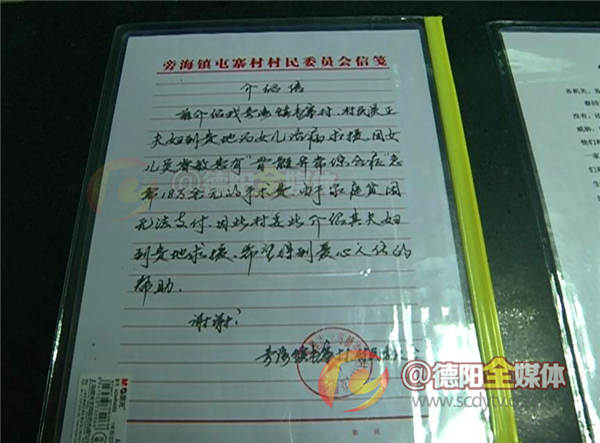 旁海镇屯寨村村民委员会信笺
介绍信
兹介绍我旁海镇屯寨村，村民吴正
夫妇到贵地为女儿治病求援，因女
儿吴 敏患有"骨髓异常综合症急
需18万余元的手术费，由于家庭贫困
无法支付，因此村委此介绍其夫妇
到贵地求援，希望得到爱心人仕的
帮助。
谢谢！
旁海镇屯寨村
@德阳全媒体
@德阳全媒体
www.scdytv.c
M&G
各机关、
没有，
威胁，
他们